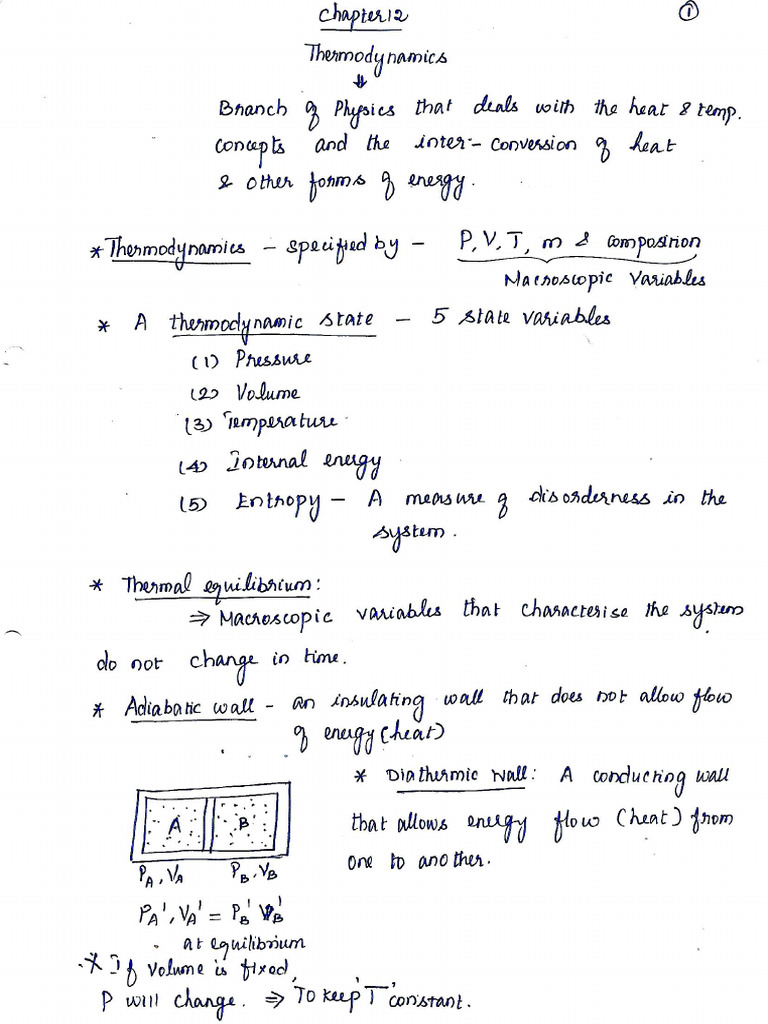 Chapter 12
①
Thermodynamics
⇓
Branch of Physics that deals with the heat & temp.
concepts and the inter-conversion of heat
& other forms of energy.
* Thermodynamics - specified by - P, V, T, m & composition
Macroscopic Variables
* A thermodynamic state - 5 state variables
(1) Pressure
(2) Volume
(3) Temperature
(4) Internal energy
(5) Entropy - A measure of disorderness in the
system.
* Thermal equilibrium:
⇒ Macroscopic variables that characterise the system
do not change in time.
* Adiabatic wall - an insulating wall that does not allow flow
of energy (heat)
* Diathermic Wall: A conducting wall
that allows energy flow (heat) from
one to another.
A B
P_A, V_A P_B, V_B
P_A', V_A' = P_B' V_B'
at equilibrium
* If volume is fixed,
P will change. ⇒ 'To keep 'T' constant.